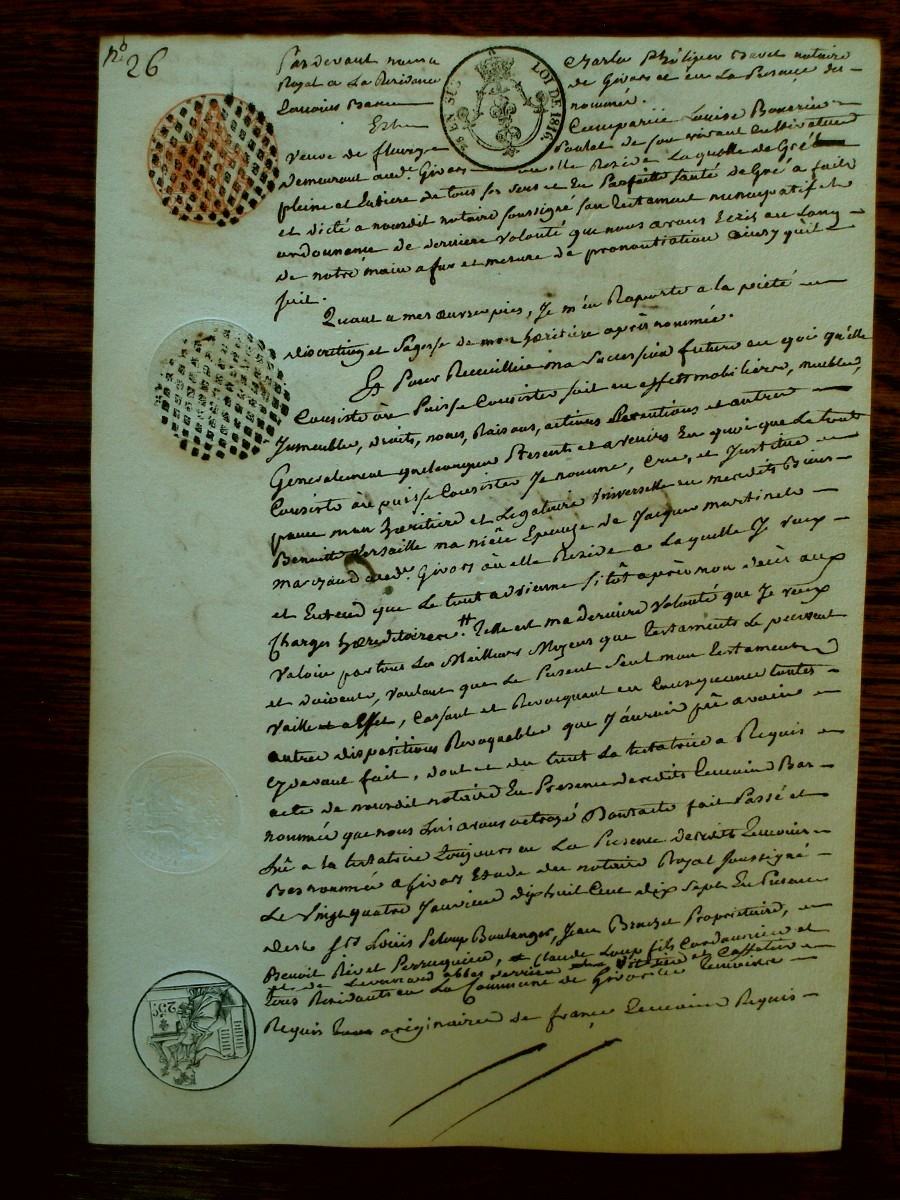 N° 26
Pardevant nous Charles Philipe Davet notaire
Royal a La Residence de Givors et en La Presence des
temoins Bas nommés.
Est Comparüe Louise
Veuve de fleury Poulat de son vivant Cultivateur
demeurant aud. Givors ou elle Reside Laquelle de Gré
pleine et Entiere de tous ses sens et En Parfaite santé de Gré a fait
et dicté a nousdit notaire soussigné son testament noncupatif et
ordonnance de derniere volonté que nous avons Ecrit au Long
de notre main a fur et mesure de prononciation Ainsy qu'il
suit.
Quant a mes œuvres pies, Je m'en Raporte a la pieté
discretion et sagesse de mon hœritière après nommée.
Et Pour Recueillir ma succession future en quoi qu'elle
Consiste ou Puisse Consister soit en effets mobiliers, meubles,
Jmmeubles, droits, noms, Raisons, actions Pretentions et autres
Generalement quelconques Presents et avenirs En quoi que Le tout
Consiste ou puisse Consister Je nomme, Crée, et Jnstitue
pour mon hœritière et Legataire Universelle en mesdits Biens
Benoitte Versaille ma niêce Epouse de Jacques martinet
marchand aud. Givors où elle Reside a Laquelle Je veux
et Entend que Le tout advienne sitôt après mon decès aux
Charges hœreditaires. Telle est ma derniere volonté que Je veux
valoir par tous Les Meilleurs Moyens que testaments Le peuvent
et doivent, voulant que Le Present seul mon testament
vaille et a Effet, Cassant et Revocquant en Consequence toutes
autres dispositions Revoquables que J'aurois pû avoir
cydevant fait, dont et du tout La testatrice a Requis
acte de nousdit notaire En Presence desdits temoins Bas
nommés que nous Lui avons octroyé Dontacte fait Passé et
Lû a la testatrice toujours en La Presence desdits temoins
Bas nommés a Givors Etude du notaire Royal soussigné
Le Vingt quatre Janvier dix huit Cent dix sept En Presence
des Srs Louis Peloux Boulanger, Jean Propriétaire,
Benoit Rivet Perruquier, et Claude Loup fils Cordonnier et
et de Leonnard verrier
tous Residants en La Commune de Givors temoins
Requis tous originaires de france temoins Requis
LOI DE 1816.
25 c.